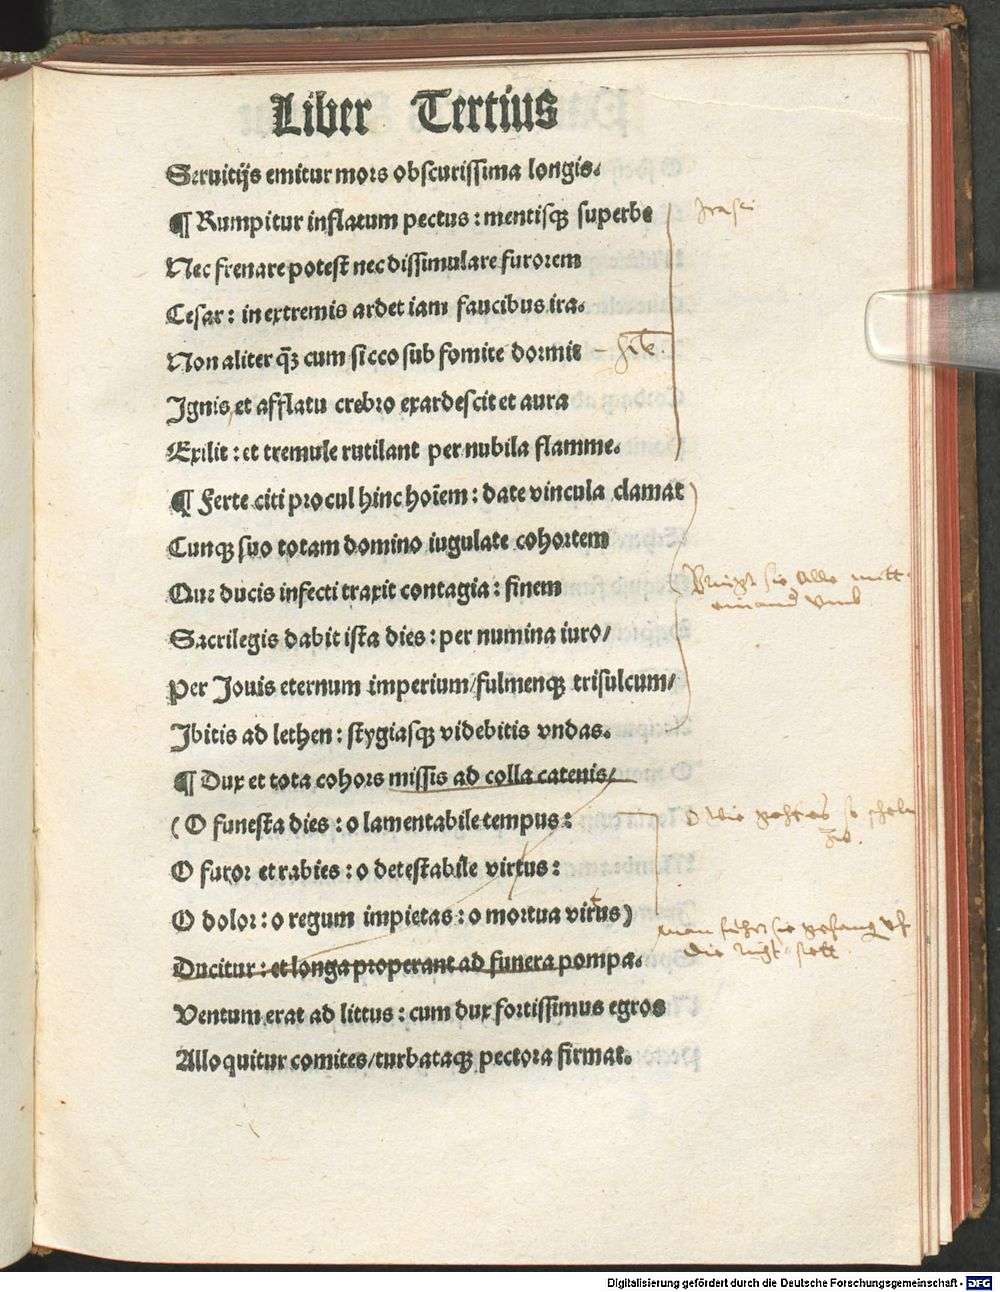 Liber Tertius
Seruitijs emitur mors obscurissima longis/
¶ Rumpitur inflatum pectus: mentisqꝫ superbe
Nec frenare potest nec dissimulare furorem
Cesar: in extremis ardet iam faucibus ira.
Non aliter q̄ꝫ cum sicco sub fomite dormit
Ignis et afflatu crebro exardescit et aura
Exilit: et tremule rutilant per nubila flamme.
¶ Ferte citi procul hinc hoīem: date vincula clamat
Cunqꝫ suo totam domino iugulate cohortem
Que ducis infecti traxit contagia: finem
Sacrilegis dabit ista dies: per numina iuro/
Per Jouis eternum imperium/fulmenqꝫ trisulcum/
Ibitis ad lethen: stygiasqꝫ videbitis vndas.
¶ Dux et tota cohors missis ad colla catenis/
(O funesta dies: o lamentabile tempus:
O furor et rabies: o detestabile virtus:
O dolor: o regum impietas: o mortua virtus)
Ducitur: et longa properant ad funera pompa.
Ventum erat ad littus: cum dux fortissimus egros
Alloquitur comites/turbataqꝫ pectora firmat.
sie alle mitt
einand vmb
O wie so
man sie gefang vf
die
Digitalisierung gefördert durch die Deutsche Forschungsgemeinschaft - DFG